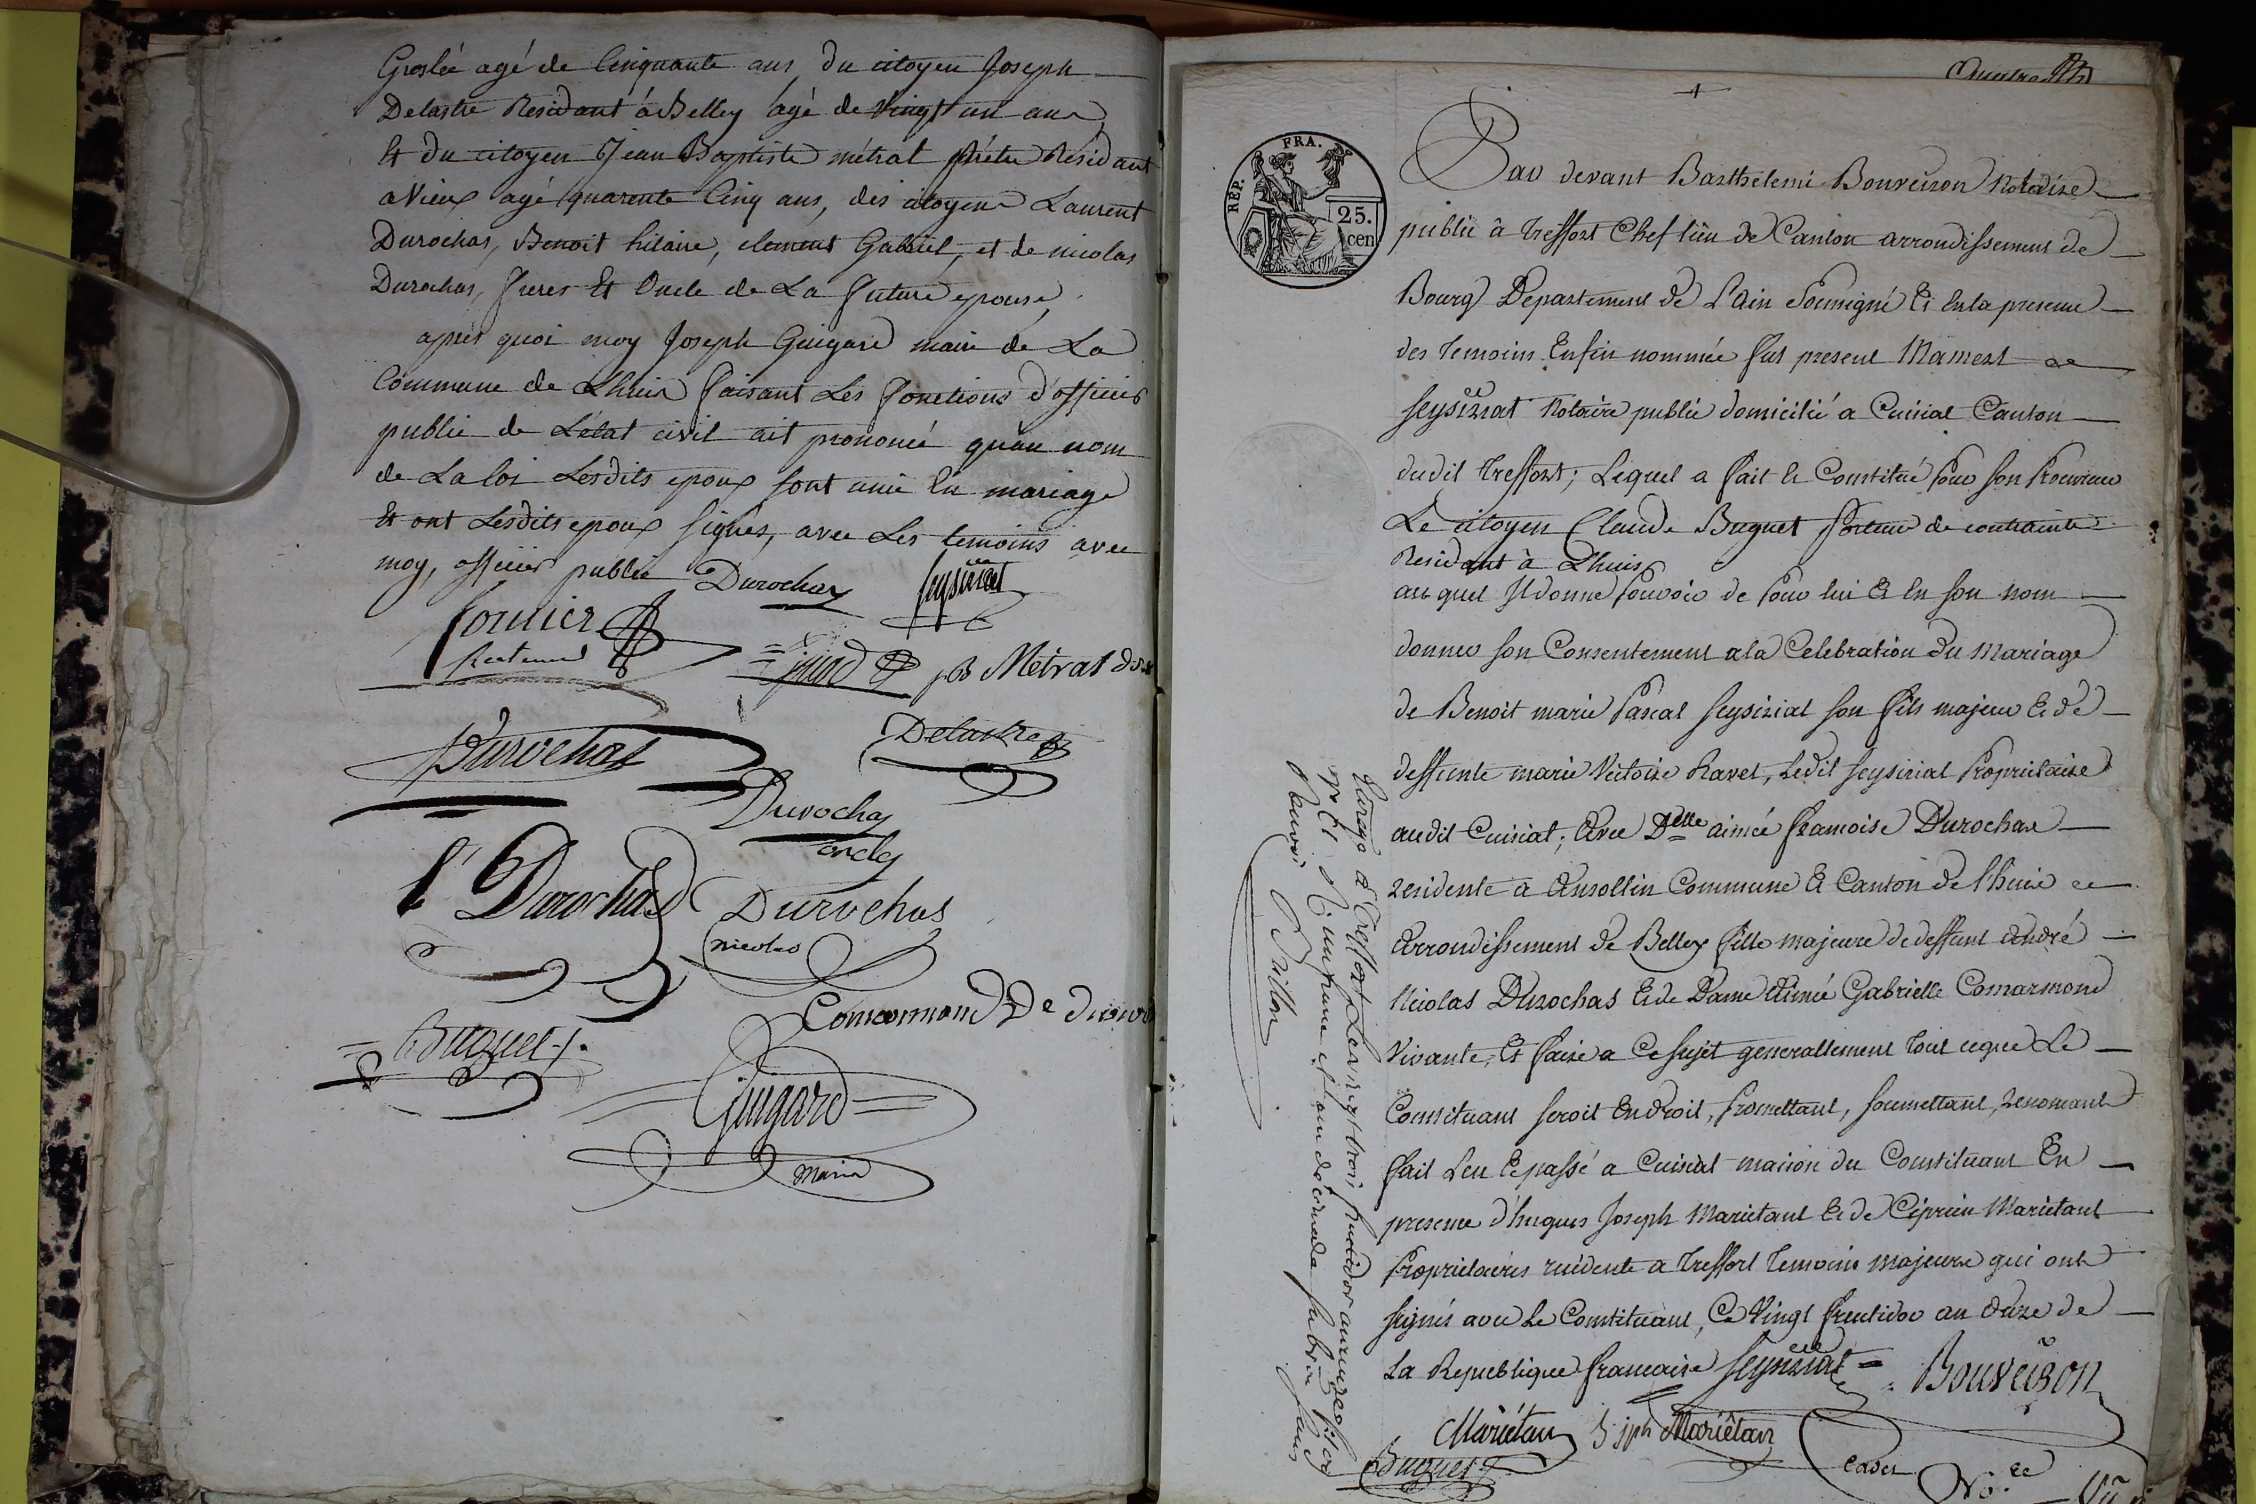 Groslée agé de Cinquante ans, du citoyen Joseph
Delastre Residant a Belley agé de vingt un ans,
Et du citoyen Jean Baptiste métral prêtre Résidant
a Vieux agé quarente Cinq ans, des citoyens Laurent
Durochas, Benoit hilaire, clement Gabriel, et de nicolas
Durochas, freres Et Oncle de La future epouse,
après quoi moy Joseph Guigard maire de La
Commune de Lhuis faisant Les fonctions d'officier
public de L'état civil ait prononcé qu'au nom
de La loi Lesdits epoux sont unis En mariage
Et ont Lesdits epoux signés, avec Les temoins avec
moy, officier public Durochas Seysiriat
Fornier
jB Métral
Durochas
Delastre
Durochas
oncle
l. Durochas
Durochas
nicolas
Comarmond De
Buguet
Guigard
Maire
REP. FRA.
25.
cen
Par devant Barthelemi Bouveiron Notaire
public à Treffort Chef lieu de Canton arrondissement de
Bourg Departement de L'Ain Soussigné Et En la presence
des temoins Enfin nommés fut present Mamert
Seysiriat Notaire public domicilié a Cuisiat Canton
dudit Treffort; Lequel a fait Et Constitué pour son Procureur
Le citoyen Claude Buguet Porteur de contrainte
Residant à Lhuis
auquel Il donne pouvoir de pour lui Et En son nom
donner son Consentement a la Celebration du Mariage
de Benoit marie Pascal Seysiriat son fils majeur Et de
deffunte marie Victoire Ravet, Ledit Seysiriat Proprietaire
audit Cuisiat; Avec Delle aimée francoise Durochas
residente a Ansollin Commune Et Canton de l'huis
Arrondissement de Belley fille majeure de deffunt André
Nicolas Durochas Et de Dame Aimée Gabrielle Comarmond
Vivante, Et faire a Ce sujet generallement tout ceque Le
Constituant seroit En droit, Promettant, soumettant, renoncant
fait Leu Et passé a Cuisiat maison du Constituant En
presence d'hugues Joseph Marietant Et de Ciprien Marietant
Proprietaires residents a Treffort temoins majeurs qui ont
signés avec Le Constituant, Ce Vingt fructidor an Onze de
La Republique francaise Seysiriat Bouveiron
Mariétan Jph Mariétan
Buguet
Cadet
Nore
Enregé a Treffort Le vingt trois fructidor an onze